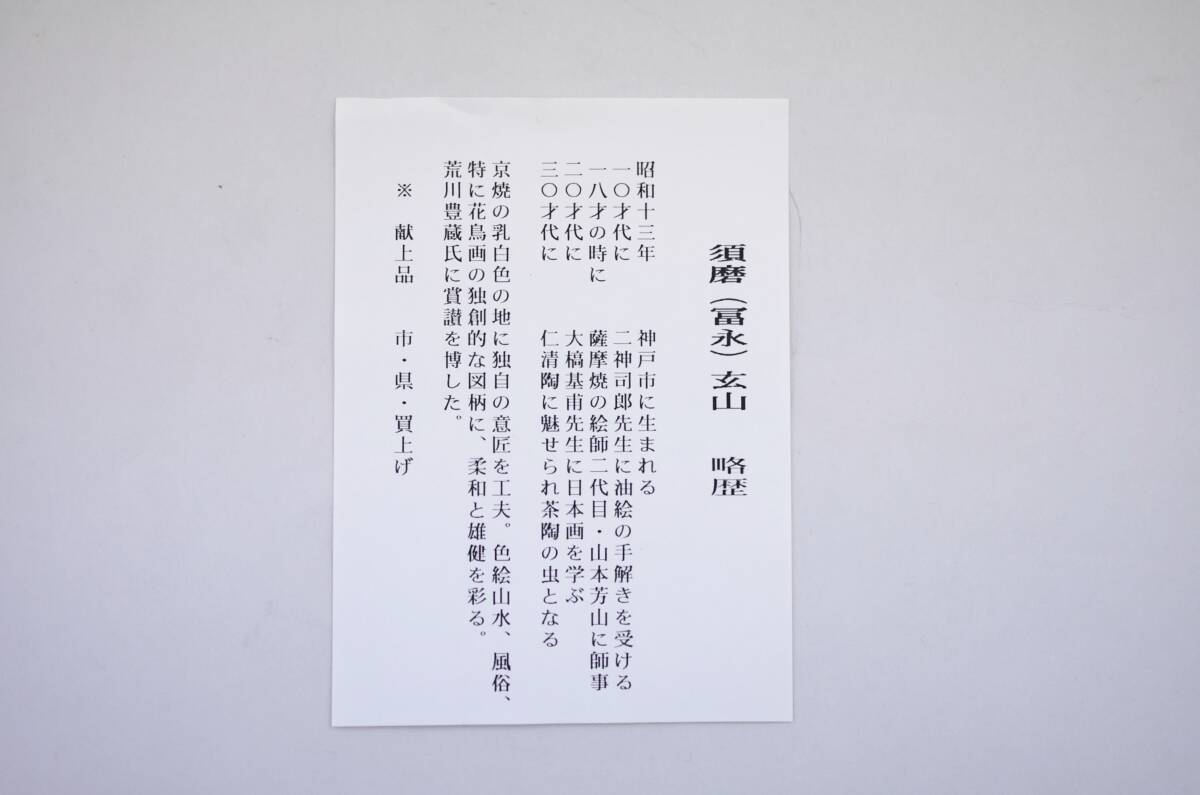 須磨（冨永）玄山　略歴
昭和十三年　神戸市に生まれる
一〇才代に　二神司郎先生に油絵の手解きを受ける
一八才の時に　薩摩焼の絵師二代目・山本芳山に師事
二〇才代に　大槁基甫先生に日本画を学ぶ
三〇才代に　仁清陶に魅せられ茶陶の虫となる
京焼の乳白色の地に独自の意匠を工夫。色絵山水、風俗、
特に花鳥画の独創的な図柄に、柔和と雄健を彩る。
荒川豊蔵氏に賞讃を博した。
※　献上品　市・県・買上げ